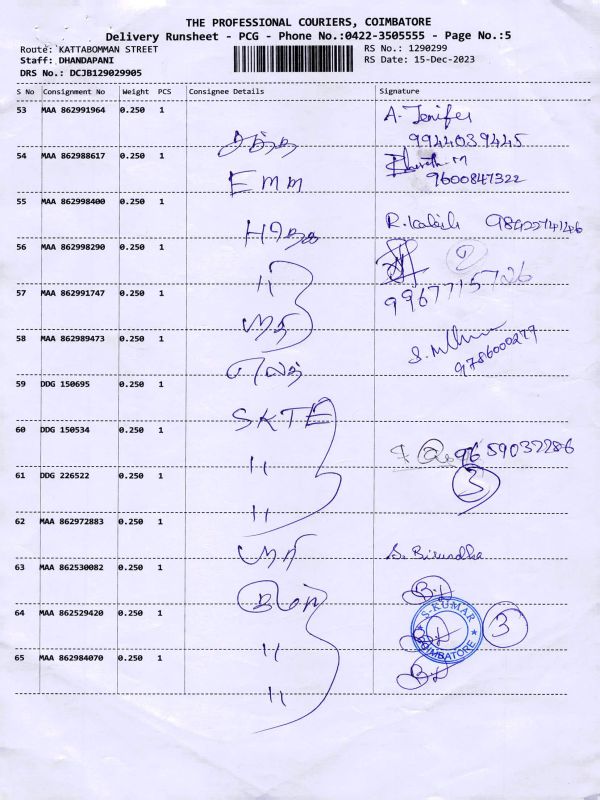 THE PROFESSIONAL COURIERS, COIMBATORE
Delivery Runsheet - PCG - Phone No.:0422-3505555 - Page No.:5
Route: KATTABOMMAN STREET
RS No.: 1290299
Staff: DHANDAPANI
RS Date: 15-Dec-2023
DRS No.: DCJB129029905
S No Consignment No Weight PCS Consignee Details Signature
53 MAA 862991964 0.250 1 A. Jenifer
9944039445
54 MAA 862988617 0.250 1 EMM Bharath M
9600847322
55 MAA 862998400 0.250 1 R. 9842274146
56 MAA 862998290 0.250 1 " 2
9967715726
57 MAA 862991747 0.250 1
58 MAA 862989473 0.250 1 9786000279
59 DDG 150695 0.250 1 SKTE
60 DDG 150534 0.250 1 " 9659032286
61 DDG 226522 0.250 1 " 3
62 MAA 862972883 0.250 1 S. Birundha
63 MAA 862530082 0.250 1
64 MAA 862529420 0.250 1 " S-KUMAR COIMBATORE 3
65 MAA 862984070 0.250 1 "